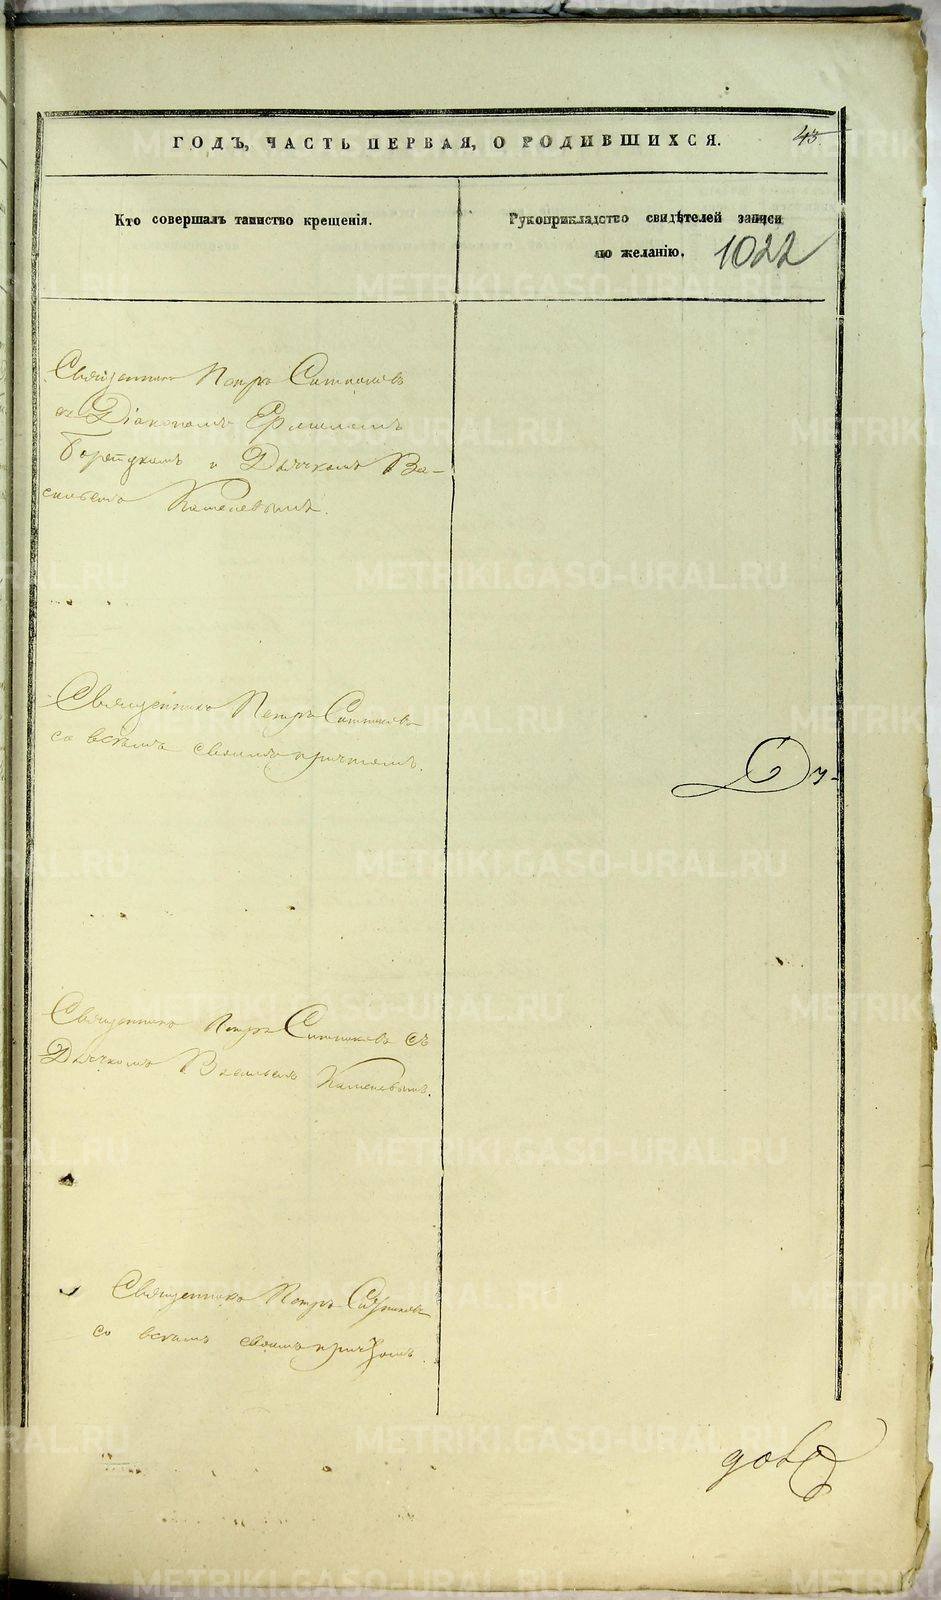 ГОДЪ, ЧАСТЬ ПЕРВАЯ, О РОДИВШИХСЯ.
43
Кто совершалъ таинство крещенія.
Рукоприкладство свидѣтелей записи
по желанію.
1022
Священникъ Петръ Ситниковъ
съ Діакономъ
и Дьячкомъ Ва-
сильемъ
Священникъ Петръ Ситниковъ
со всѣмъ своимъ причтомъ.
Ду-
Священникъ Петръ Ситниковъ съ
Дьячкомъ Васильемъ
Священникъ Петръ Ситниковъ
со всѣмъ своимъ причтомъ.
METRIKI.GASO-URAL.RU